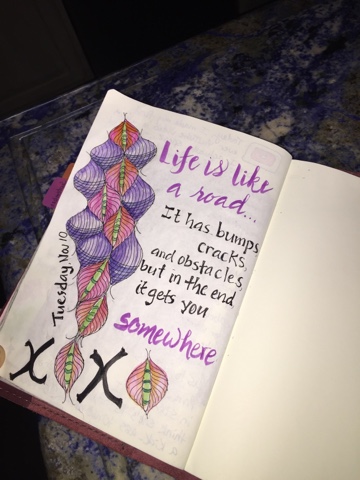 Life is like
a road...
It has bumps,
cracks,
and obstacles,
but in the end
it gets you
somewhere
Tuesday Nov 10
X X